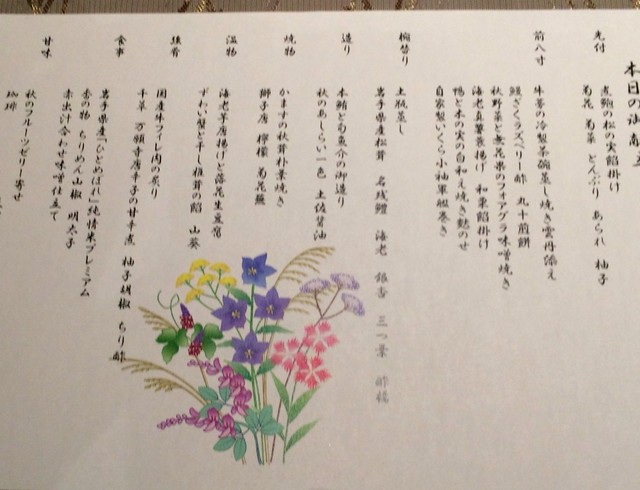 本日の御献立
先付
煮鮑の松の実餡掛け
菊花 菊菜 とんぶり あられ 柚子
前八寸
牛蒡の冷製茶碗蒸し焼き雲丹添え
鰻ざくラズベリー酢 丸十煎餅
秋野菜と無花果のフォアグラ味噌焼き
海老真薯蓑揚げ 和栗餡掛け
鴨と木の実の白和え焼き麩のせ
自家製いくら小袖軍艦巻き
椀替り
土瓶蒸し
岩手県産松茸 名残鱧 海老 銀杏 三つ葉 酢橘
造り
本鮪と旬魚介の御造り
秋のあしらい一色 土佐醤油
焼物
かますの秋茸朴葉焼き
獅子唐 檸檬 菊花蕪
温物
海老芋唐揚げと落花生豆腐
ずわい蟹と干し椎茸の餡 山葵
強肴
国産牛フィレ肉の炙り
千草 万願寺唐辛子の甘辛煮 柚子胡椒 ちり酢
食事
岩手県産「ひとめぼれ」純情米プレミアム
香の物 ちりめん山椒 明太子
赤出汁合わせ味噌仕立て
甘味
秋のフルーツゼリー寄せ
珈琲